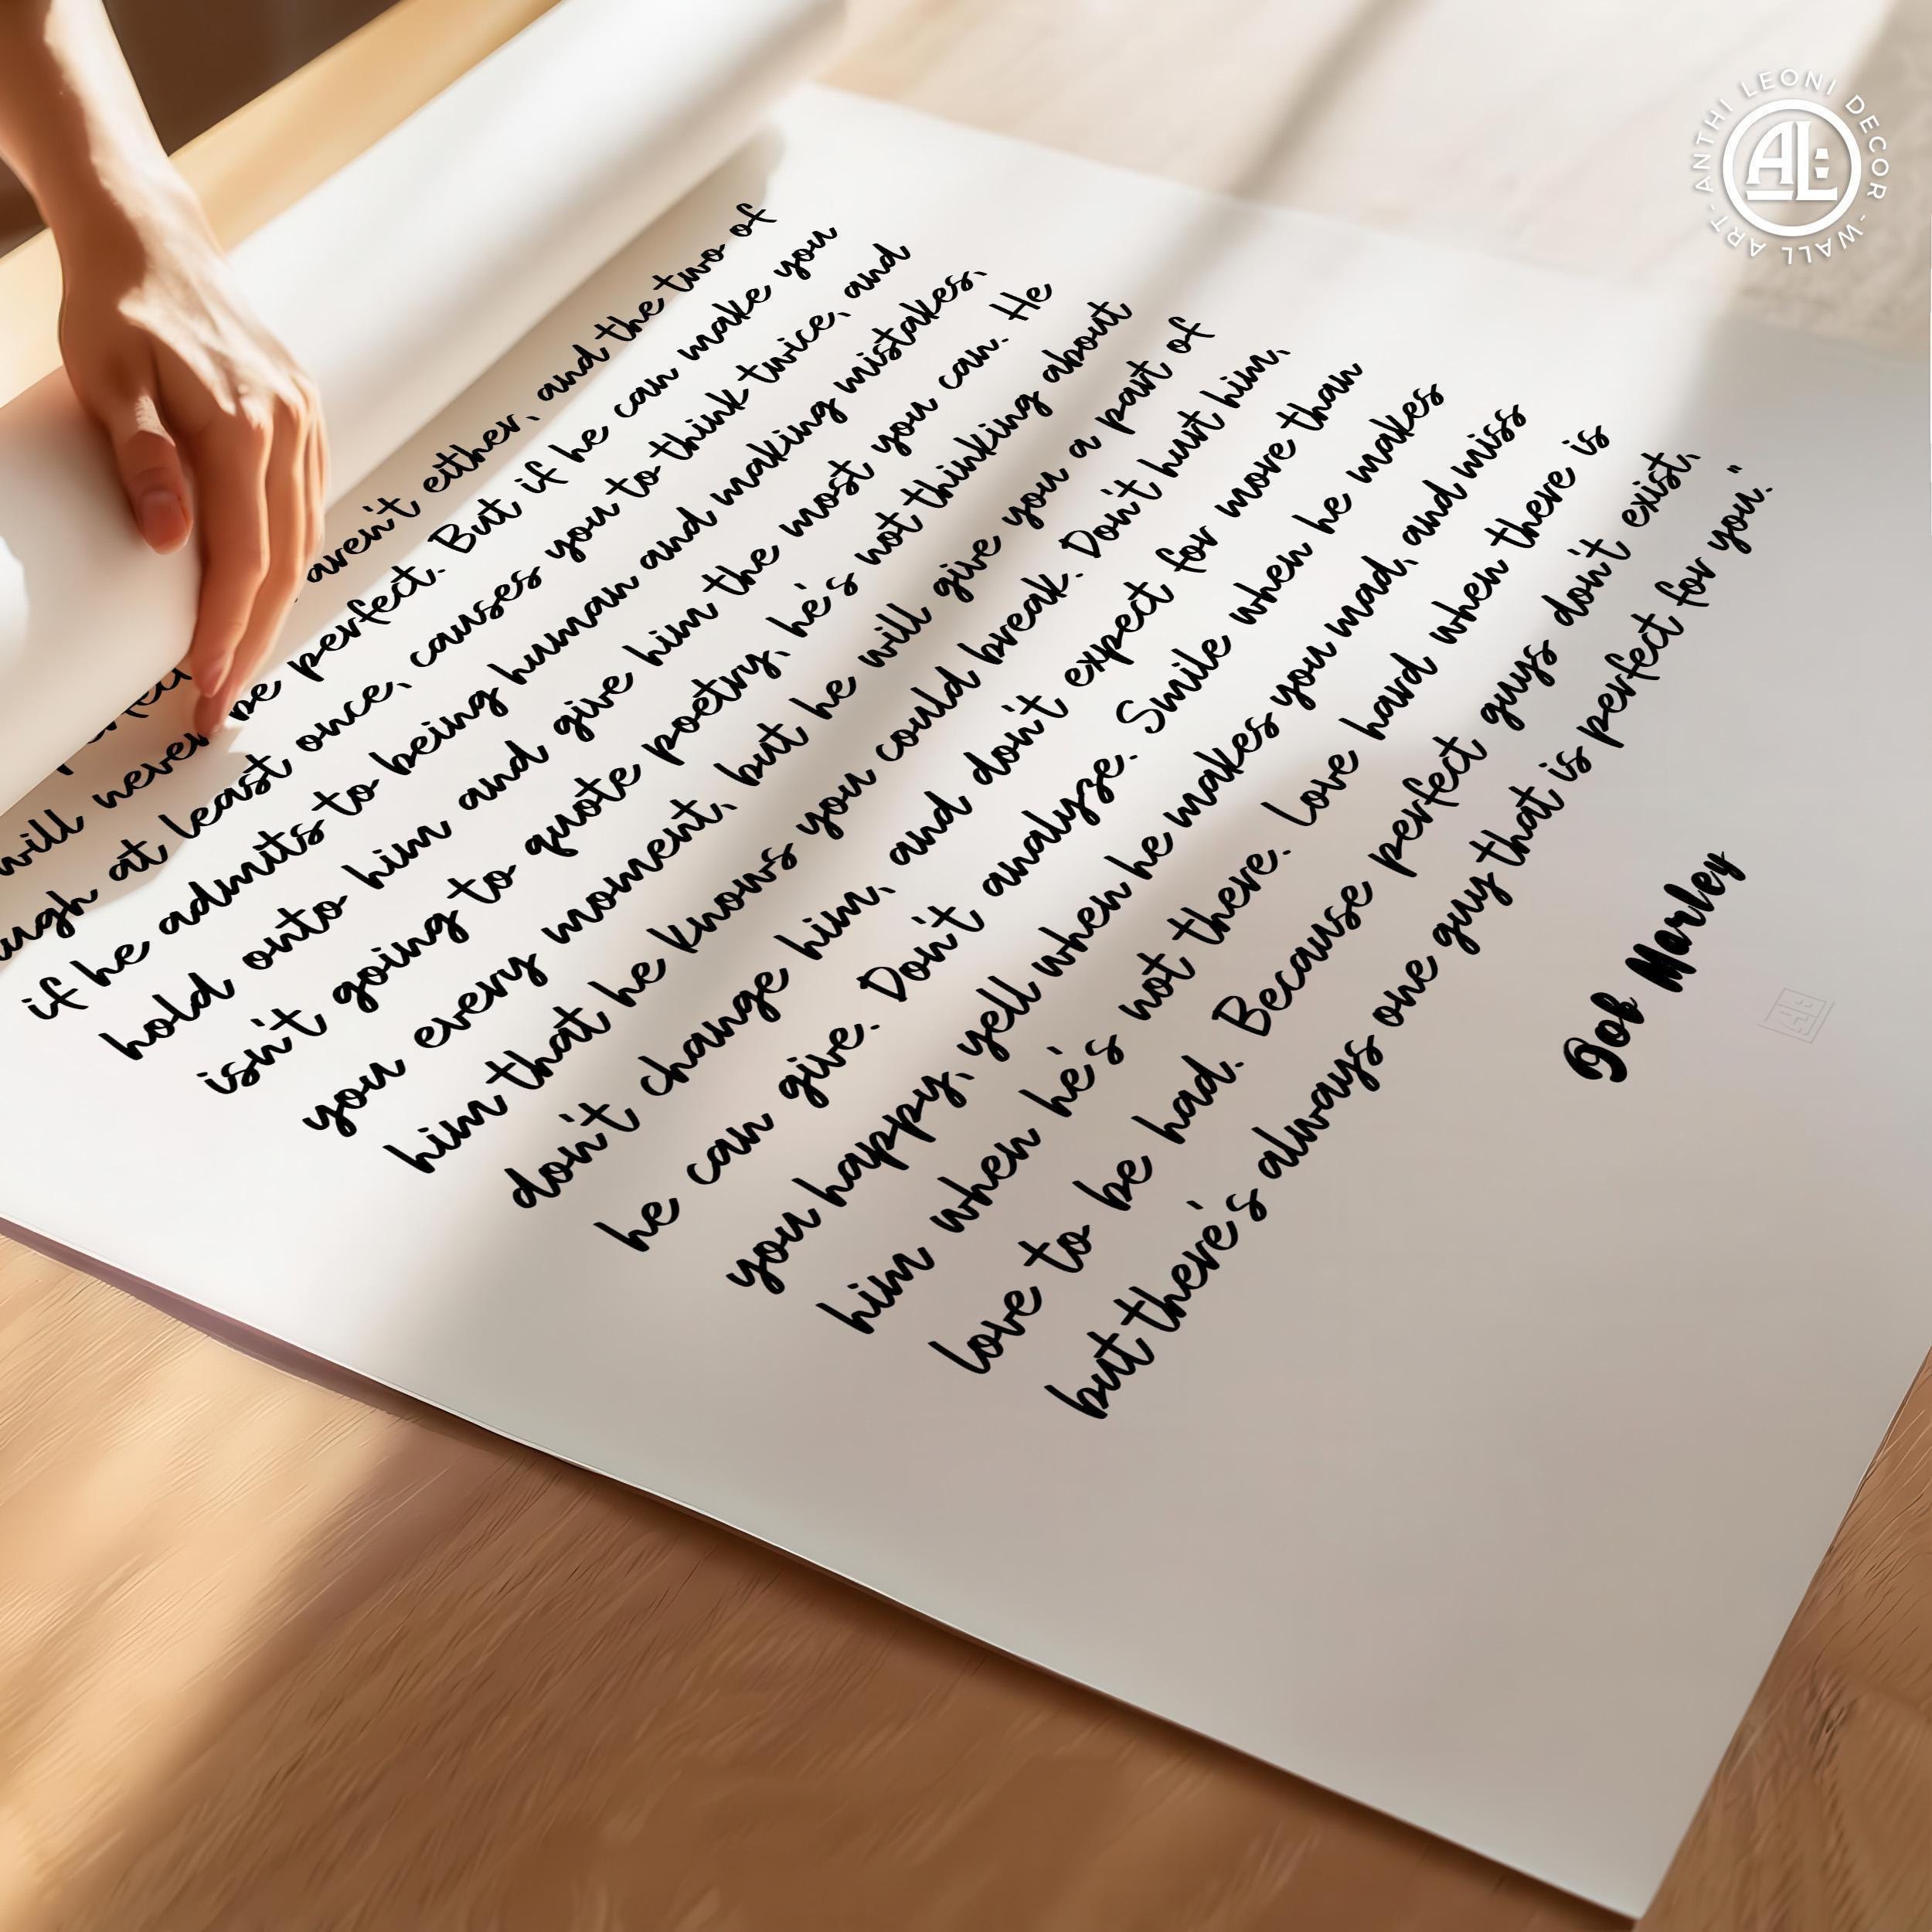 aren't either, and the two of
will never be perfect. But if he can make you
at least once, causes you to think twice, and
if he admits to being human and making mistakes,
hold onto him and give him the most you can. He
isn't going to quote poetry, he's not thinking about
you every moment, but he will give you a part of
him that he knows you could break. Don't hurt him,
don't change him, and don't expect for more than
he can give. Don't analyze. Smile when he makes
you happy, yell when he makes you mad, and miss
him when he's not there. Love hard when there is
love to be had. Because perfect guys don't exist,
but there's always one guy that is perfect for you."
Bob Marley
ANTHI LEONI DECOR - WALL ART -
AL